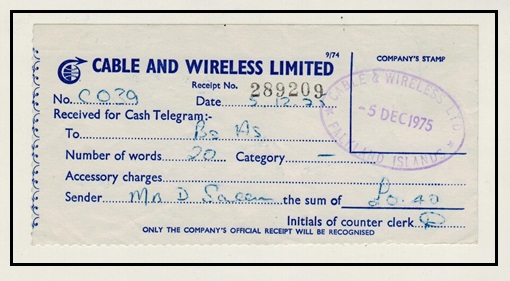 9/74
COMPANY'S STAMP
CABLE AND WIRELESS LIMITED
Receipt No. 289209
No. CO29 Date 5.12.75
CABLE & WIRELESS LTD
-5 DEC 1975
FALKLAND ISLANDS
Received for Cash Telegram:-
To Bs As
Number of words 20 Category —
Accessory charges
Sender Mr D the sum of £0.40
Initials of counter clerk
ONLY THE COMPANY'S OFFICIAL RECEIPT WILL BE RECOGNISED